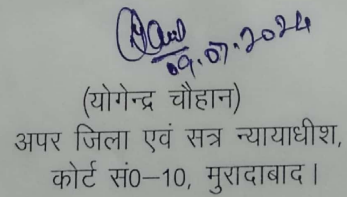 09.07.2024
(योगेन्द्र चौहान)
अपर जिला एवं सत्र न्यायाधीश,
कोर्ट सं0–10, मुरादाबाद।